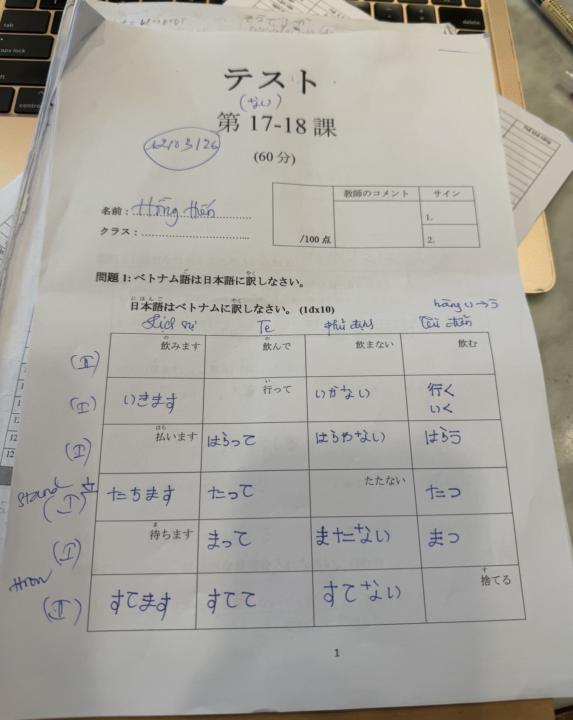 テスト
(ない)
第 17-18 課
(60 分)
名前：Hồng Hến
クラス：
/100 点
教師のコメント
サイン
1.
2.
問題 1: ベトナム語は日本語に訳しなさい。
日本語はベトナムに訳しなさい。 (1đx10)
hàng u → う
lịch sự Te phủ định từ điển
(I) 飲みます 飲んで 飲まない 飲む
(I) いきます 行って いかない 行く いく
(I) 払います はらって はらわない はらう
Stand 立 (I) たちます たって たたない たつ
(I) 待ちます まって またない まつ
(II) すてます すてて すてない 捨てる
1